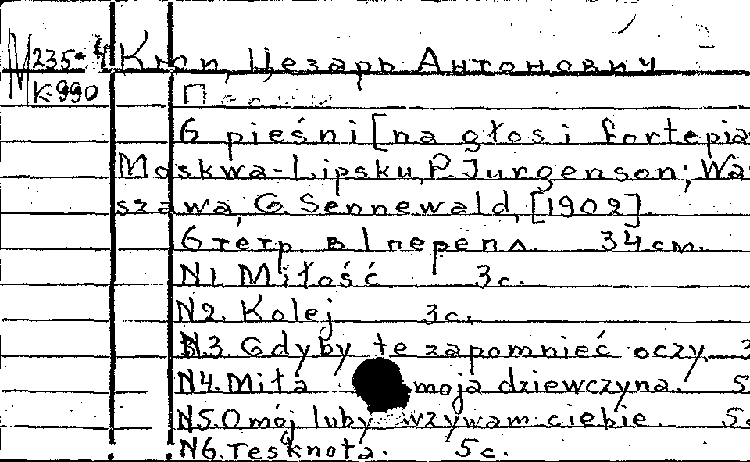 М 235-4 Кюи, Цезарь Антонович
К-990 Песни
6 pieśni [na głos i fortepia
Moskwa-Lipsku, P. Jurgenson; Wa
szawa, G. Sennewald, [1902].
6 тетр. в 1 перепл. 34 см.
N1. Miłość 3с.
N2. Kolej 3с.
N3. Gdyby te zapomnieć oczy. 3
N4. Miła moja dziewczyna. 5
N5. O mój luby wzywam ciebie. 5с
N6. Tesknota. 5с.